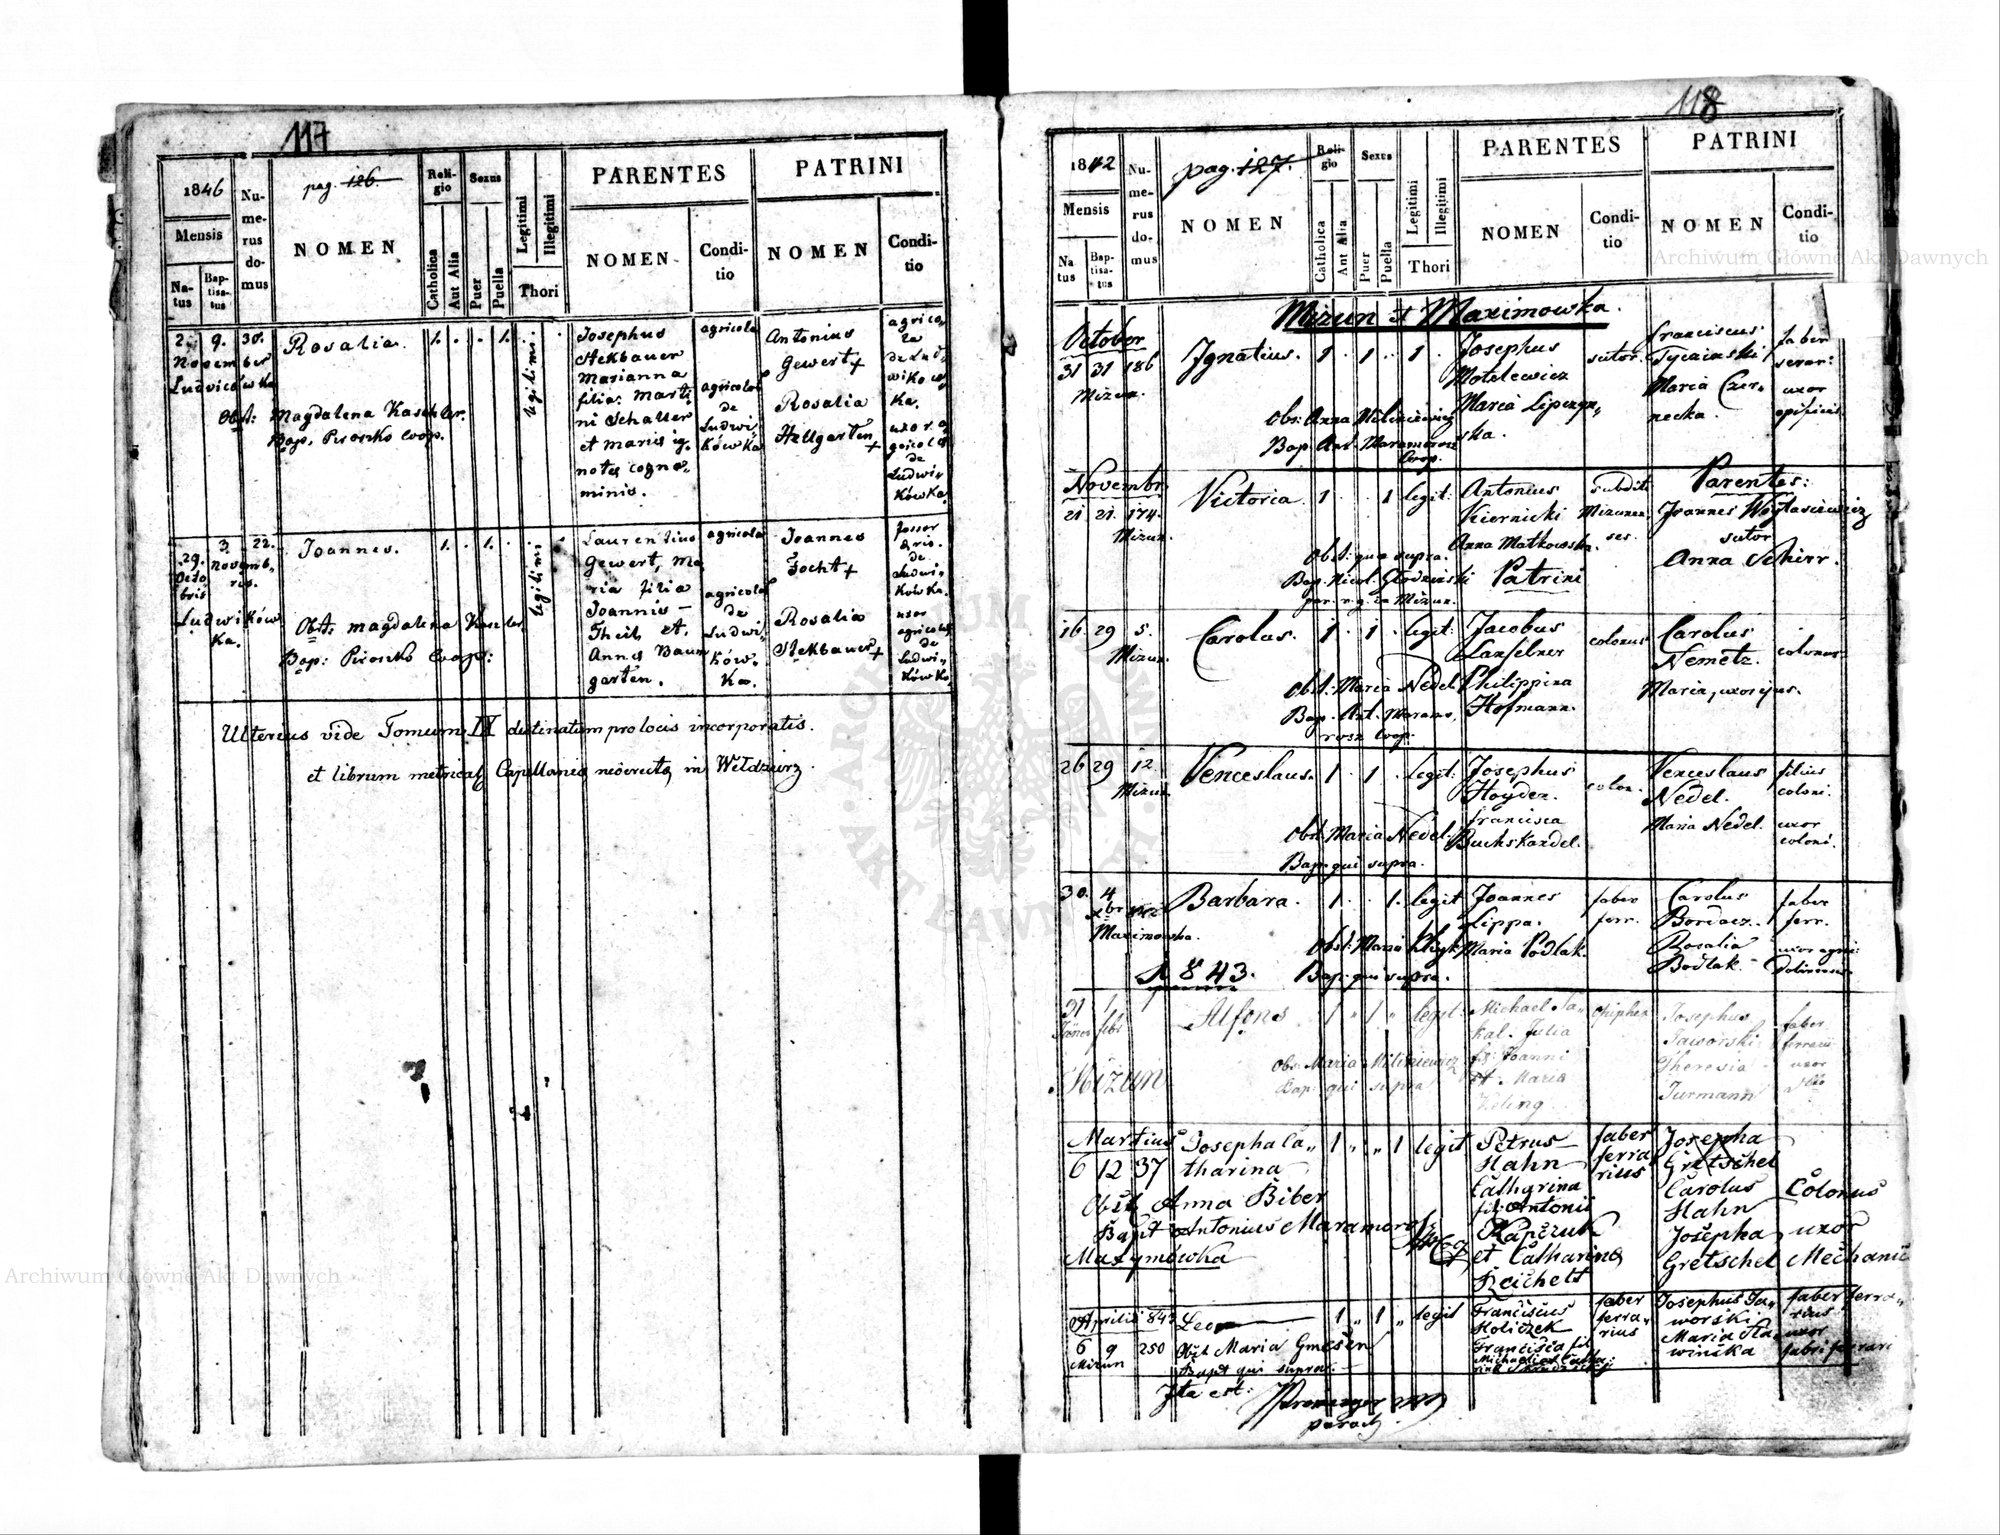 117
1846
Mensis
Natus
Baptisatus
Numerus domus
pag. 126.
NOMEN
Religio
Catholica
Aut Alia
Sexus
Puer
Puella
Legitimi
Illegitimi
Thori
PARENTES
NOMEN
Conditio
PATRINI
NOMEN
Conditio
2. 9. 30.
November
Ludwicówka
Rosalia.
1. . . 1.
legitimi
Obst: Magdalena Kaschler.
Bap. Piroszko Coop.
Josephus
Stekbauer
Marianna
filia Marti
ni Schaller
et maris ig-
notę cogno-
minis.
agricola
agricola
de
Ludwi
kówka
Antonius
Gewert +
Rosalia
Hellgarten +
agrico-
la
de Lud-
wikow
ka.
uxor a
gricolæ
de
Ludwi-
kówka
29. 3. 22.
Octo
bris
Novemb.
ris.
Ludwików
ka.
Joannes.
1. . 1. .
legitimi
Obst: Magdalena Kaszler
Bap: Piroszko Coop:
Laurentius
Gewert, Ma
ria filia
Joannis
Theil, et.
Anna Baum
garten.
agricola
agricola
de
Ludwi-
ków-
ka.
Joannes
Focht +
Rosalia
Stekbauer +
fossor
de
Ludwi-
kówka.
uxor
agricolæ
de
Ludwi-
kówka
Ulterius vide Tomum IV destinatum pro locis incorporatis.
et librum metricaę Capellaniæ neoerectę in Wełdzierz.
118
1842
Mensis
Natus
Baptisatus
Numerus domus
pag. 127.
NOMEN
Religio
Catholica
Aut Alia
Sexus
Puer
Puella
Legitimi
Illegitimi
Thori
PARENTES
NOMEN
Conditio
PATRINI
NOMEN
Conditio
Mizun et Maximowka.
October
31 31 186
Mizun.
Ignatius. 1 1 1
Obs: Anna Milkiewicz
Bap. Ant. Maramorosz
Coop.
Josephus
Motelewicz
Maria
ska.
sutor.
Franciscus
Maria Czer-
necka.
faber
serar:
uxor
opificis
Novembr.
21 21. 174.
Mizun.
Victoria. 1 . 1 legit:
Obst: quæ supra.
Bap. Nicol. Głodziński
par. r. g. in Mizun.
Antonius
Kiernicki
Anna Matkowska.
Patrini
subditi
Mizunen-
ses.
Parentes:
Joannes Woytasiewicz
sutor
Anna Schirr.
16 29 5.
Mizun.
Carolus. 1 . 1 . legit:
Obst. Maria Nedel.
Bap. Ant. Maramo-
rosz Coop.
Jacobus
Lanselner
Philippina
Hofmann.
colonus
Carolus
Nemetz.
Maria, uxor ejus.
colonus.
26 29 12
Mizun.
Venceslaus. 1 . 1 . legit:
Obst. Maria Nedel.
Bap. qui supra.
Josephus
Hoyder.
Francisca
Buchskandel.
colon.
Venceslaus
Nedel.
Maria Nedel.
filius
coloni.
uxor
coloni.
30. 4
xbr
Maximowka.
Barbara. 1 . . 1. legit
Bap. qui supra.
Joannes
Lippa.
Maria Podlak.
faber
ferr.
Carolus
Bordacz.
Rosalia
Bodlak
faber
ferr.
1843.
31 1
febr
Mizun
Alfons 1 " 1 " legit:
Obs: Maria Milkiewicz
Bap: qui supra
Michael Ja-
kal. Julia
fz: Joanni
et Maria
opiphex
Josephus
Jaworski
Theresia
Turmann
faber
ferrar:
uxor
Martius
6 12 37
Josepha Ca-
tharina
1 " " 1 legit
Obst Anna Biber
Bapt Antonius Maramorosz
Maxymówka
Petrus
Hahn
Catharina
fil: Antonii
Kapczuk
et Catharinæ
Reichelt
faber
ferra
rius
Josepha
Gretschel
Carolus
Hahn
Josepha
Gretschel
Colonus
uxor
Mechanic
Aprilis 843
6 9 250
Mizun
Leo 1 " 1 " legit
Obst Maria Gmesen
Bapt qui supra.
Franciscus
Holiczek
Francisca fil
faber
ferra-
rius
Josephus Ja-
worski
Maria Sła-
wińska
faber ferra-
rius
uxor
fabri ferrari
Ita est:
paroch
Archiwum Główne Akt Dawnych
Archiwum Główne Akt Dawnych
ARCHIWUM GŁÓWNE AKT DAWNYCH